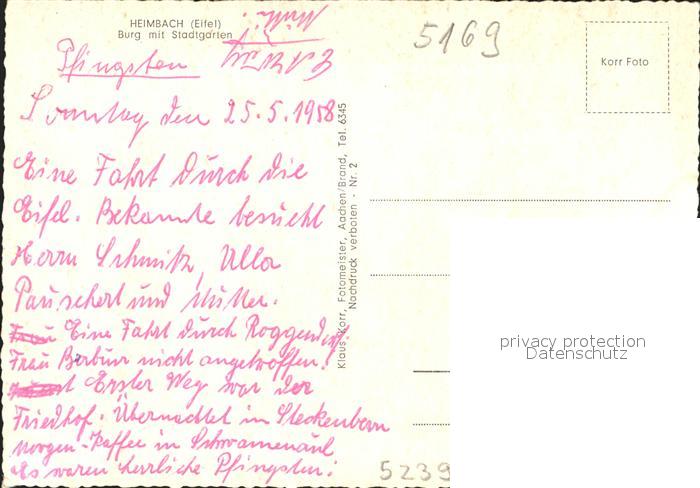 HEIMBACH (Eifel)
Burg mit Stadtgarten
5169
Korr Foto
Pfingsten
Sonntag den 25.5.1958
Eine Fahrt durch die
Eifel. Bekannte besucht
Herrn Schmitz, Ulla
Pauschert und Mutter.
Eine Fahrt durch Roggendorf.
Frau Berbuir nicht angetroffen!
Erster Weg war der
Friedhof. Übernachtet in Steckenborn
Morgen-Kaffee in Schwammenaul
Es waren herrliche Pfingsten!
Klaus Korr, Fotomeister, Aachen/Brand, Tel. 6345
Nachdruck verboten - Nr. 2
privacy protection
Datenschutz
5239